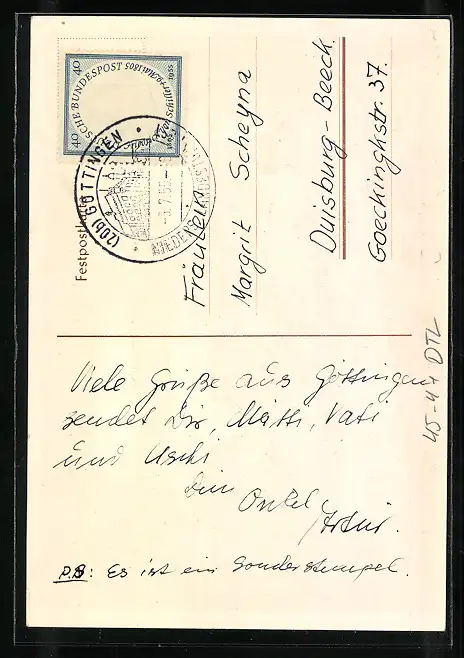 40
40
DEUTSCHE BUNDESPOST
1955
(20b) GÖTTINGEN
Festpostkarte
Fräulein
Margrit Scheyna
Duisburg-Beeck.
Goeckinghstr. 37.
Viele Grüße aus Göttingen
sendet Dir, Mutti, Vati
und Uschi
Dein
Onkel
Artur.
P.S: Es ist ein Sonderstempel.
45-47 DTL